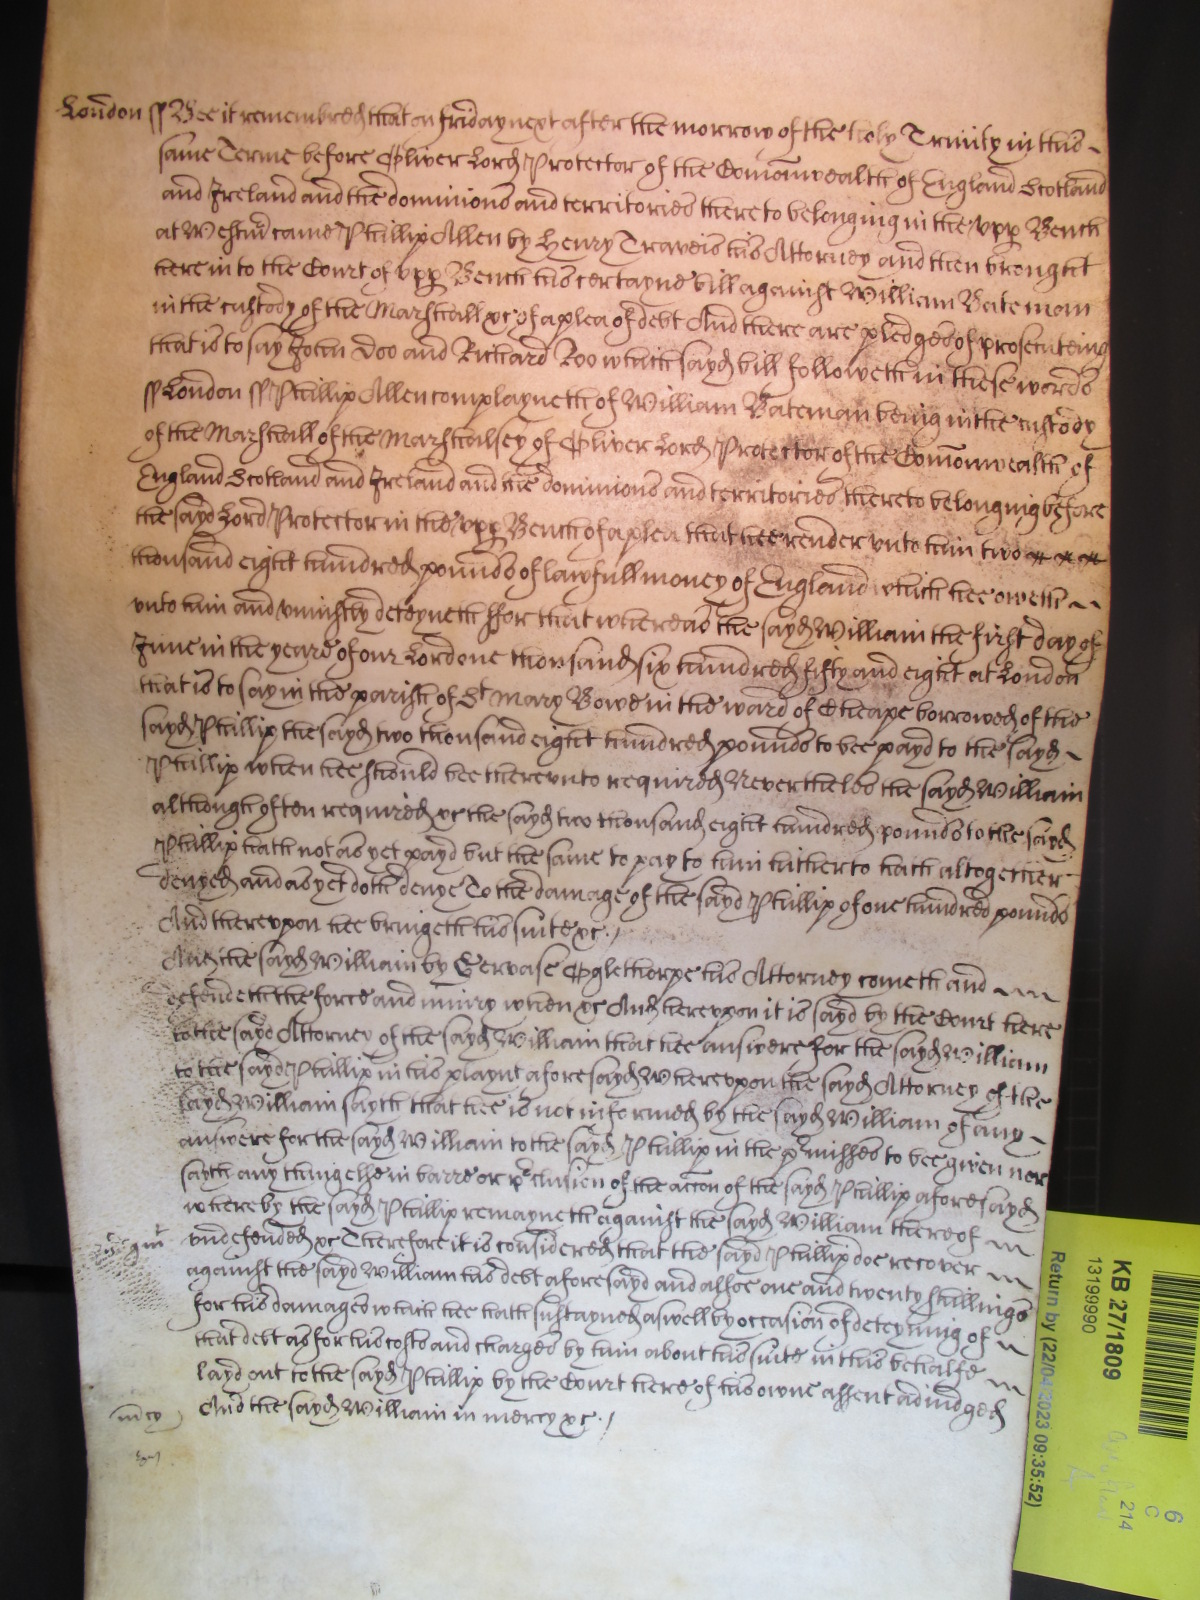 London ss Bee it remembred that on friday next after the morrow of the holy Trinity in this
same Terme before Oliver Lord Protector of the Comonwealth of England Scotland
and Ireland and the dominions and territories thereto belonging in the upp Bench
at Westmr came Phillip Allen by Henry Travers his Attorney and then brought
here into the Court of upp Bench his certayne bill against William Bateman
in the custody of the Marshall &c of a plea of debt And there are pledges of prosecuteing
that is to say John Doo and Richard Roo which sayd bill followeth in these words
ss London ss Phillip Allen complayneth of William Bateman being in the custody
of the Marshall of the Marshalsey of Oliver Lord Protector of the Comonwealth of
England Scotland and Ireland and the dominions and territories thereto belonging before
the sayd Lord Protector in the upp Bench of a plea that hee render unto him two
thousand eight hundred pounds of lawfull money of England which hee oweth
unto him and uniustly deteyneth ffor that whereas the sayd William the first day of
June in the yeare of our Lord one thousand six hundred fifty and eight at London
that is to say in the parish of St Mary Bowe in the ward of Cheape borrowed of the
sayd Phillip the sayd two thousand eight hundred pounds to bee payd to the sayd
Phillip when hee should bee thereunto required Neverthelesse the sayd William
although often required &c the sayd two thousand eight hundred pounds to the sayd
Phillip hath not as yet payd but the same to pay to him hitherto hath altogether
denyed and as yet doth denye To the damage of the sayd Phillip of one hundred pounds
And thereupon hee bringeth his suite &c.
And the sayd William by Gervase Oglethorpe his Attorney cometh and
defendeth the force and iniury when &c And hereupon it is sayd by the Court here
to the sayd Attorney of the sayd William that hee answere for the sayd William
to the sayd Phillip in his playnt aforesayd Whereupon the sayd Attorney of the
sayd William sayth that hee is not informed by the sayd William of any
answere for the sayd William to the sayd Phillip in the pmisses to bee given nor
sayth any thing else in barre or pclusion of the accon of the sayd Phillip aforesayd
whereby the sayd Phillip remayneth against the sayd William thereof
undefended &c Therefore it is considered that the sayd Phillip doe recover
against the sayd William his debt aforesayd and alsoe one and twenty shillings
for his damages which hee hath susteyned aswell by occasion of deteyning of
that debt as for his costs and charges by him about his suite in this behalfe
layd out to the sayd Phillip by the Court here of his owne assent adiudged
mcy And the sayd William in mercy &c.
KB 27/1809
13199990
Return by (22/04/2023 09:35:52)
6
C
214